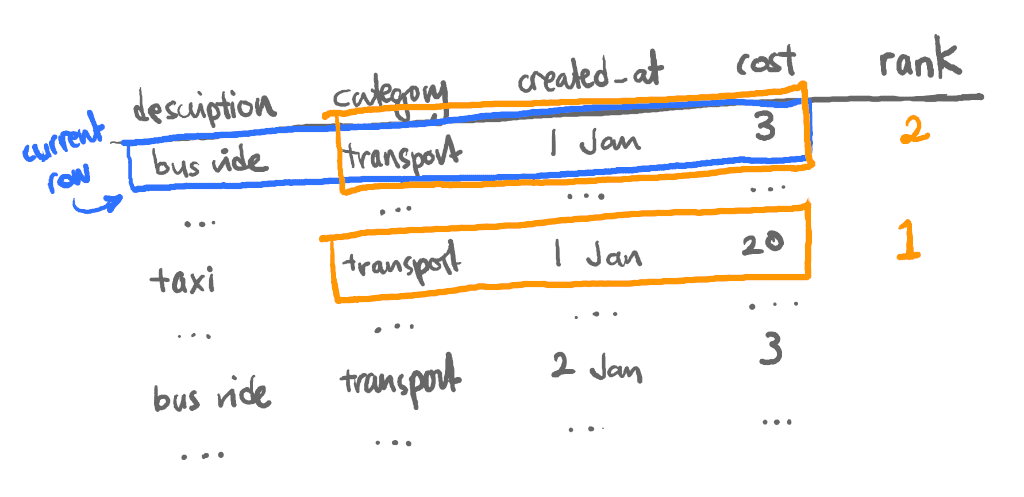 description category created_at cost rank
current row
bus ride transport 1 Jan 3 2
... ... ... ...
taxi transport 1 Jan 20 1
... ... ... ...
bus ride transport 2 Jan 3
... ... ... ...